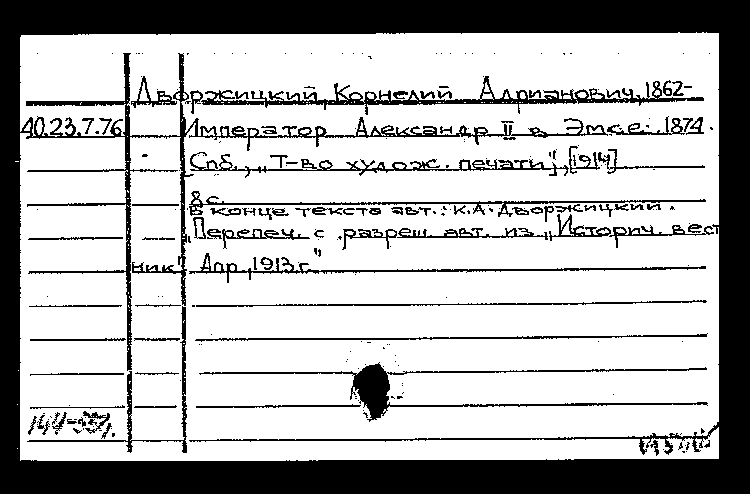 Дворжицкий, Корнелий Адрианович, 1862-
40.23.7.76 Император Александр II в Эмсе. 1874.
Спб., „Т-во худож. печати", [1914]
8 с.
В конце текста авт.: К.А. Дворжицкий.
„Перепеч. с разреш. авт. из „Историч. вест
ник" Апр., 1913 г."
144-